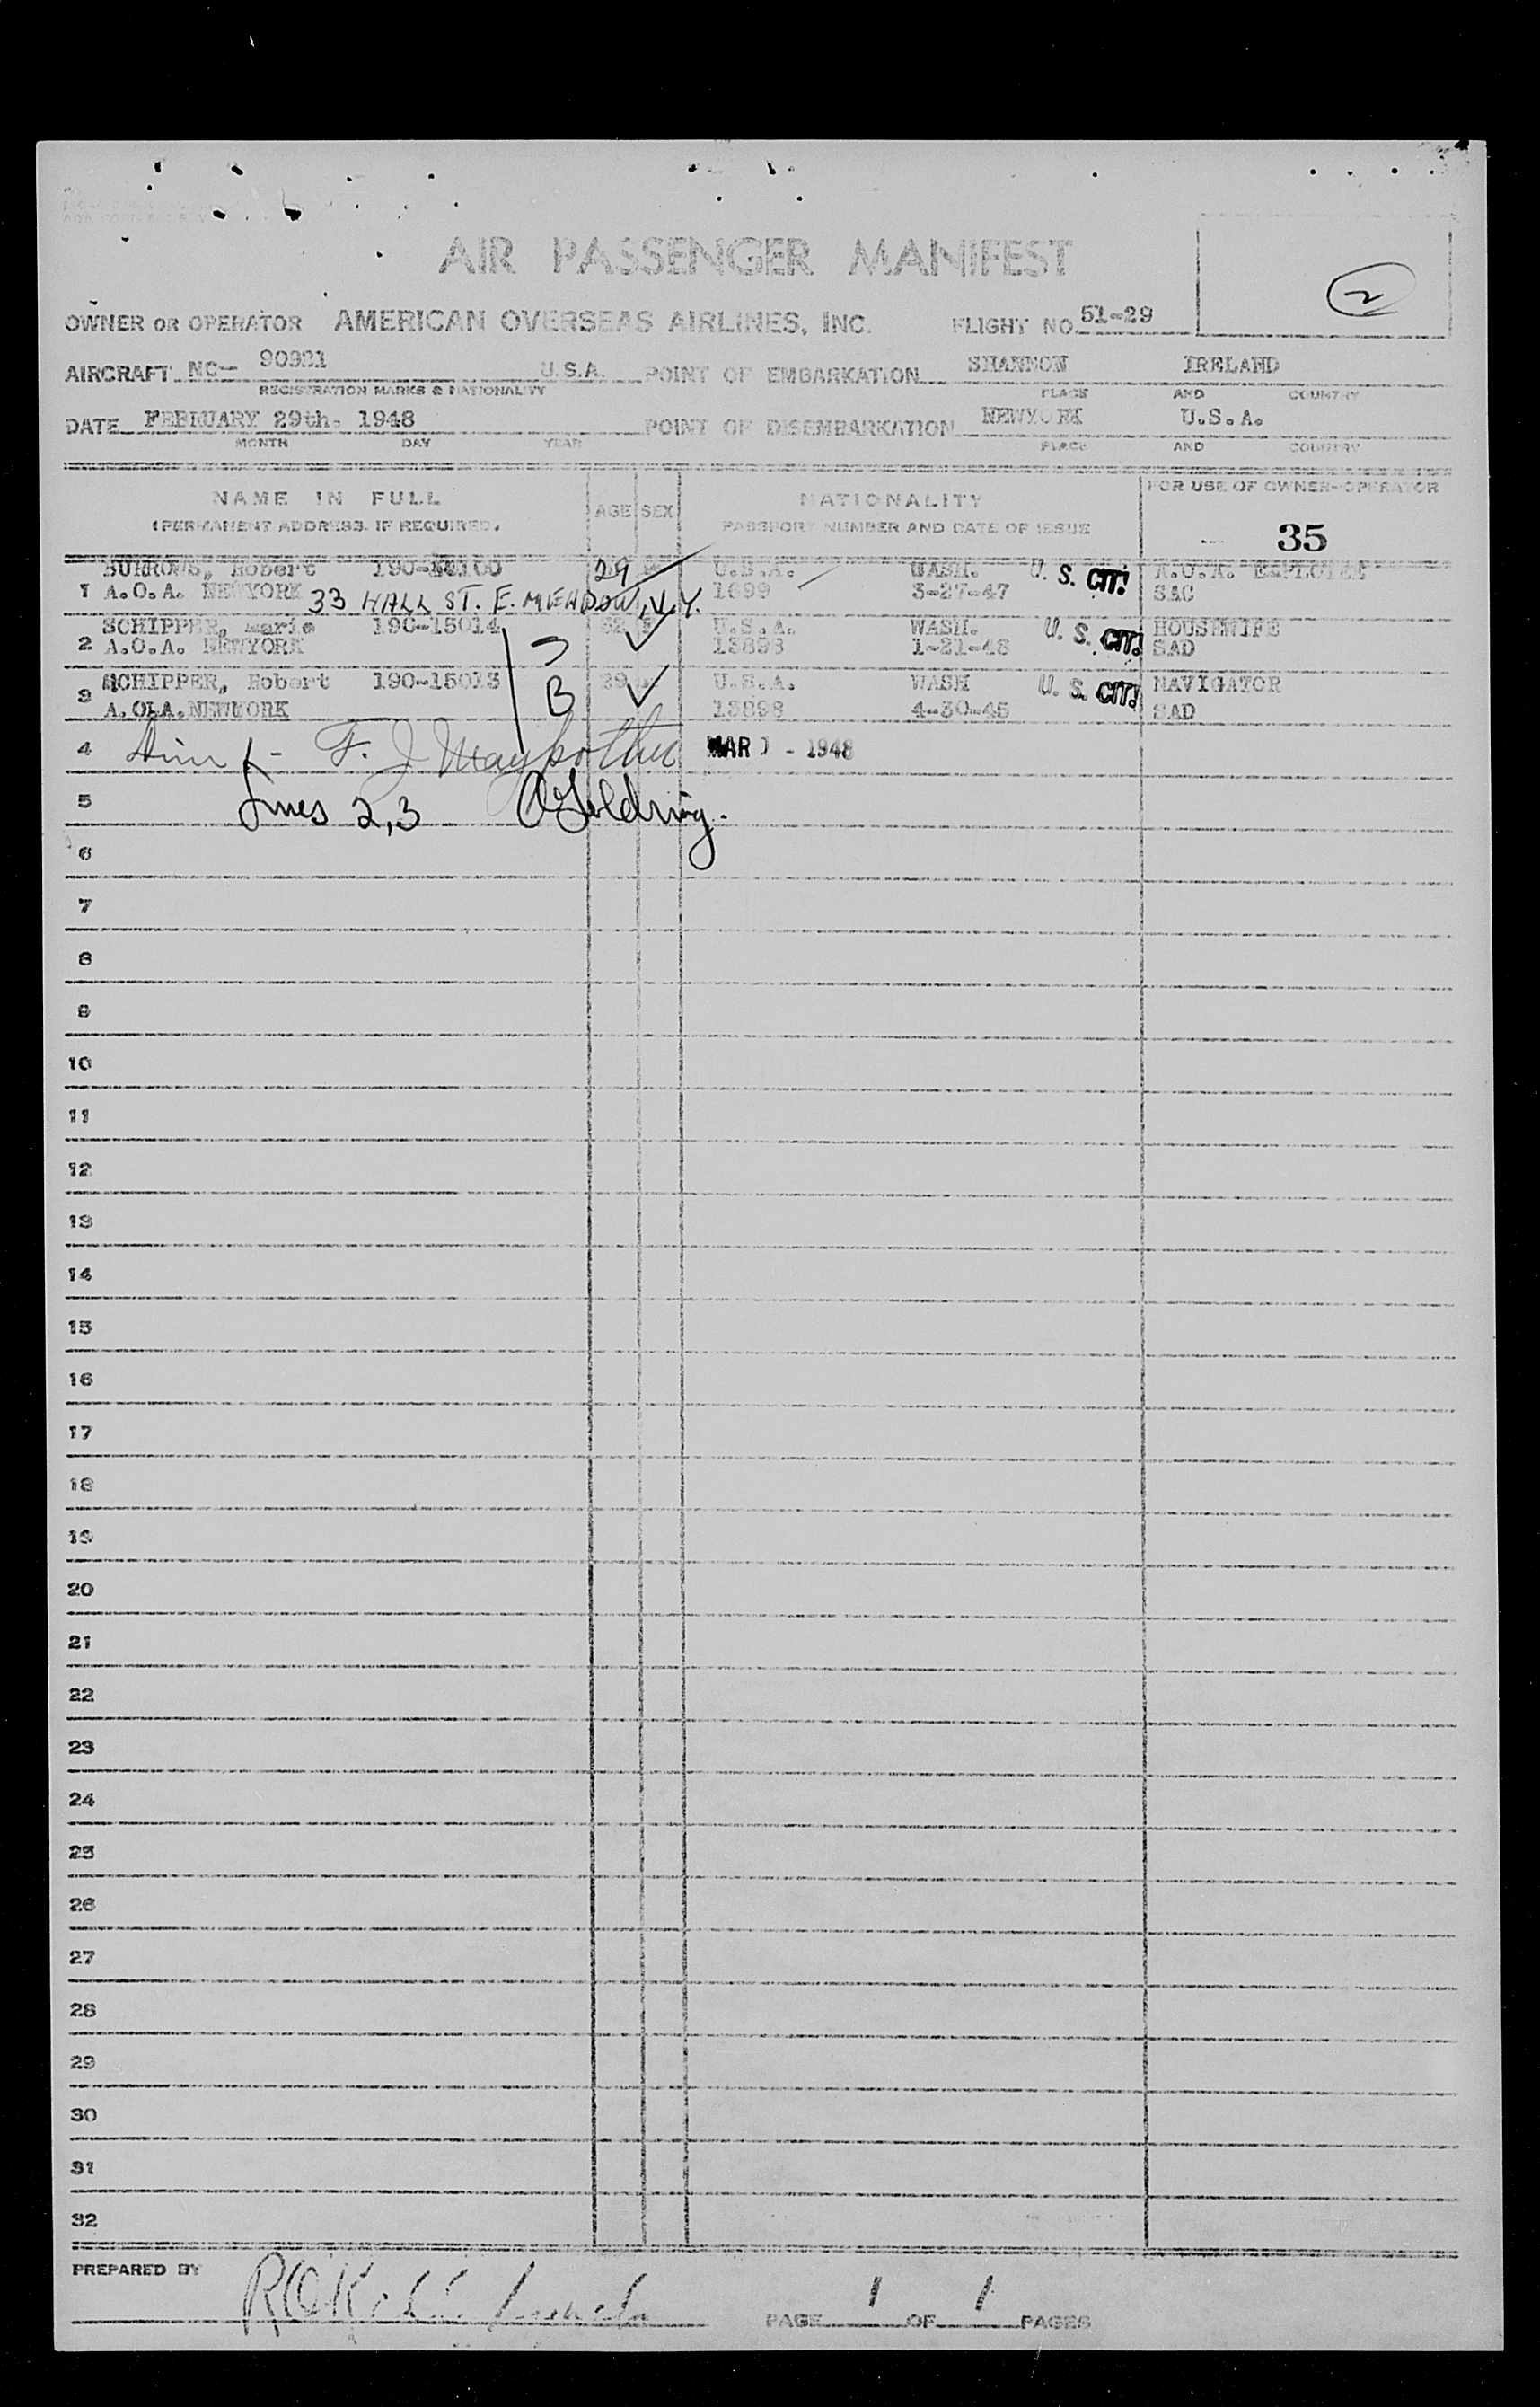 AIR PASSENGER MANIFEST
2
OWNER OR OPERATOR AMERICAN OVERSEAS AIRLINES, INC. FLIGHT NO. 51-29
AIRCRAFT NC- 90921 U.S.A. POINT OF EMBARKATION SHANNON IRELAND
REGISTRATION MARKS & NATIONALITY PLACE AND COUNTRY
DATE FEBRUARY 29th. 1948 POINT OF DISEMBARKATION NEWYORK U.S.A.
MONTH DAY YEAR PLACE AND COUNTRY
NAME IN FULL AGE SEX NATIONALITY FOR USE OF OWNER-OPERATOR
(PERMANENT ADDRESS, IF REQUIRED) PASSPORT NUMBER AND DATE OF ISSUE
35
BURROWS, Robert 29 U.S.A. WASH. U. S. CIT! A.O.A. EMPLOYEE
1 A.O.A. NEWYORK 33 HALL ST. E. MEADOW, N.Y. 1699 3-27-47 SAC
SCHIPPER, Marie 190-15014 U.S.A. WASH. U. S. CIT! HOUSEWIFE
2 A.O.A. NEWYORK 1-21-48 SAD
SCHIPPER, Robert 190-15013 B 29 U.S.A. WASH U. S. CIT! NAVIGATOR
3 A.OLA.NEWYORK 13898 4-30-45 SAD
4 F. J. MAR 1 - 1948
5 Lines 2,3 Goldring.
6
7
8
9
10
11
12
13
14
15
16
17
18
19
20
21
22
23
24
25
26
27
28
29
30
31
32
PREPARED BY
PAGE 1 OF 1 PAGES